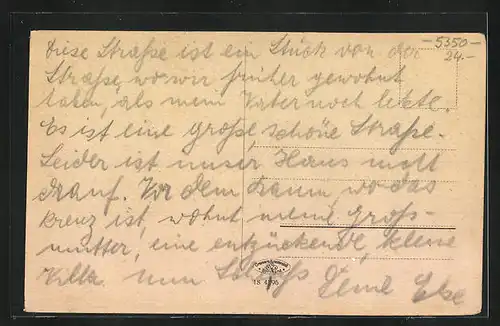 Diese Straße ist ein Stück von der
Straße, wo wir früher gewohnt
haben, als mein Vater noch lebte.
Es ist eine große, schöne Straße.
Leider ist unser Haus nicht
drauf. Vor dem Baum, wo das
Kreuz ist, wohnt meine Groß-
mutter, eine entzückende, kleine
nun Schluß Deine Else
-5350-
24.-